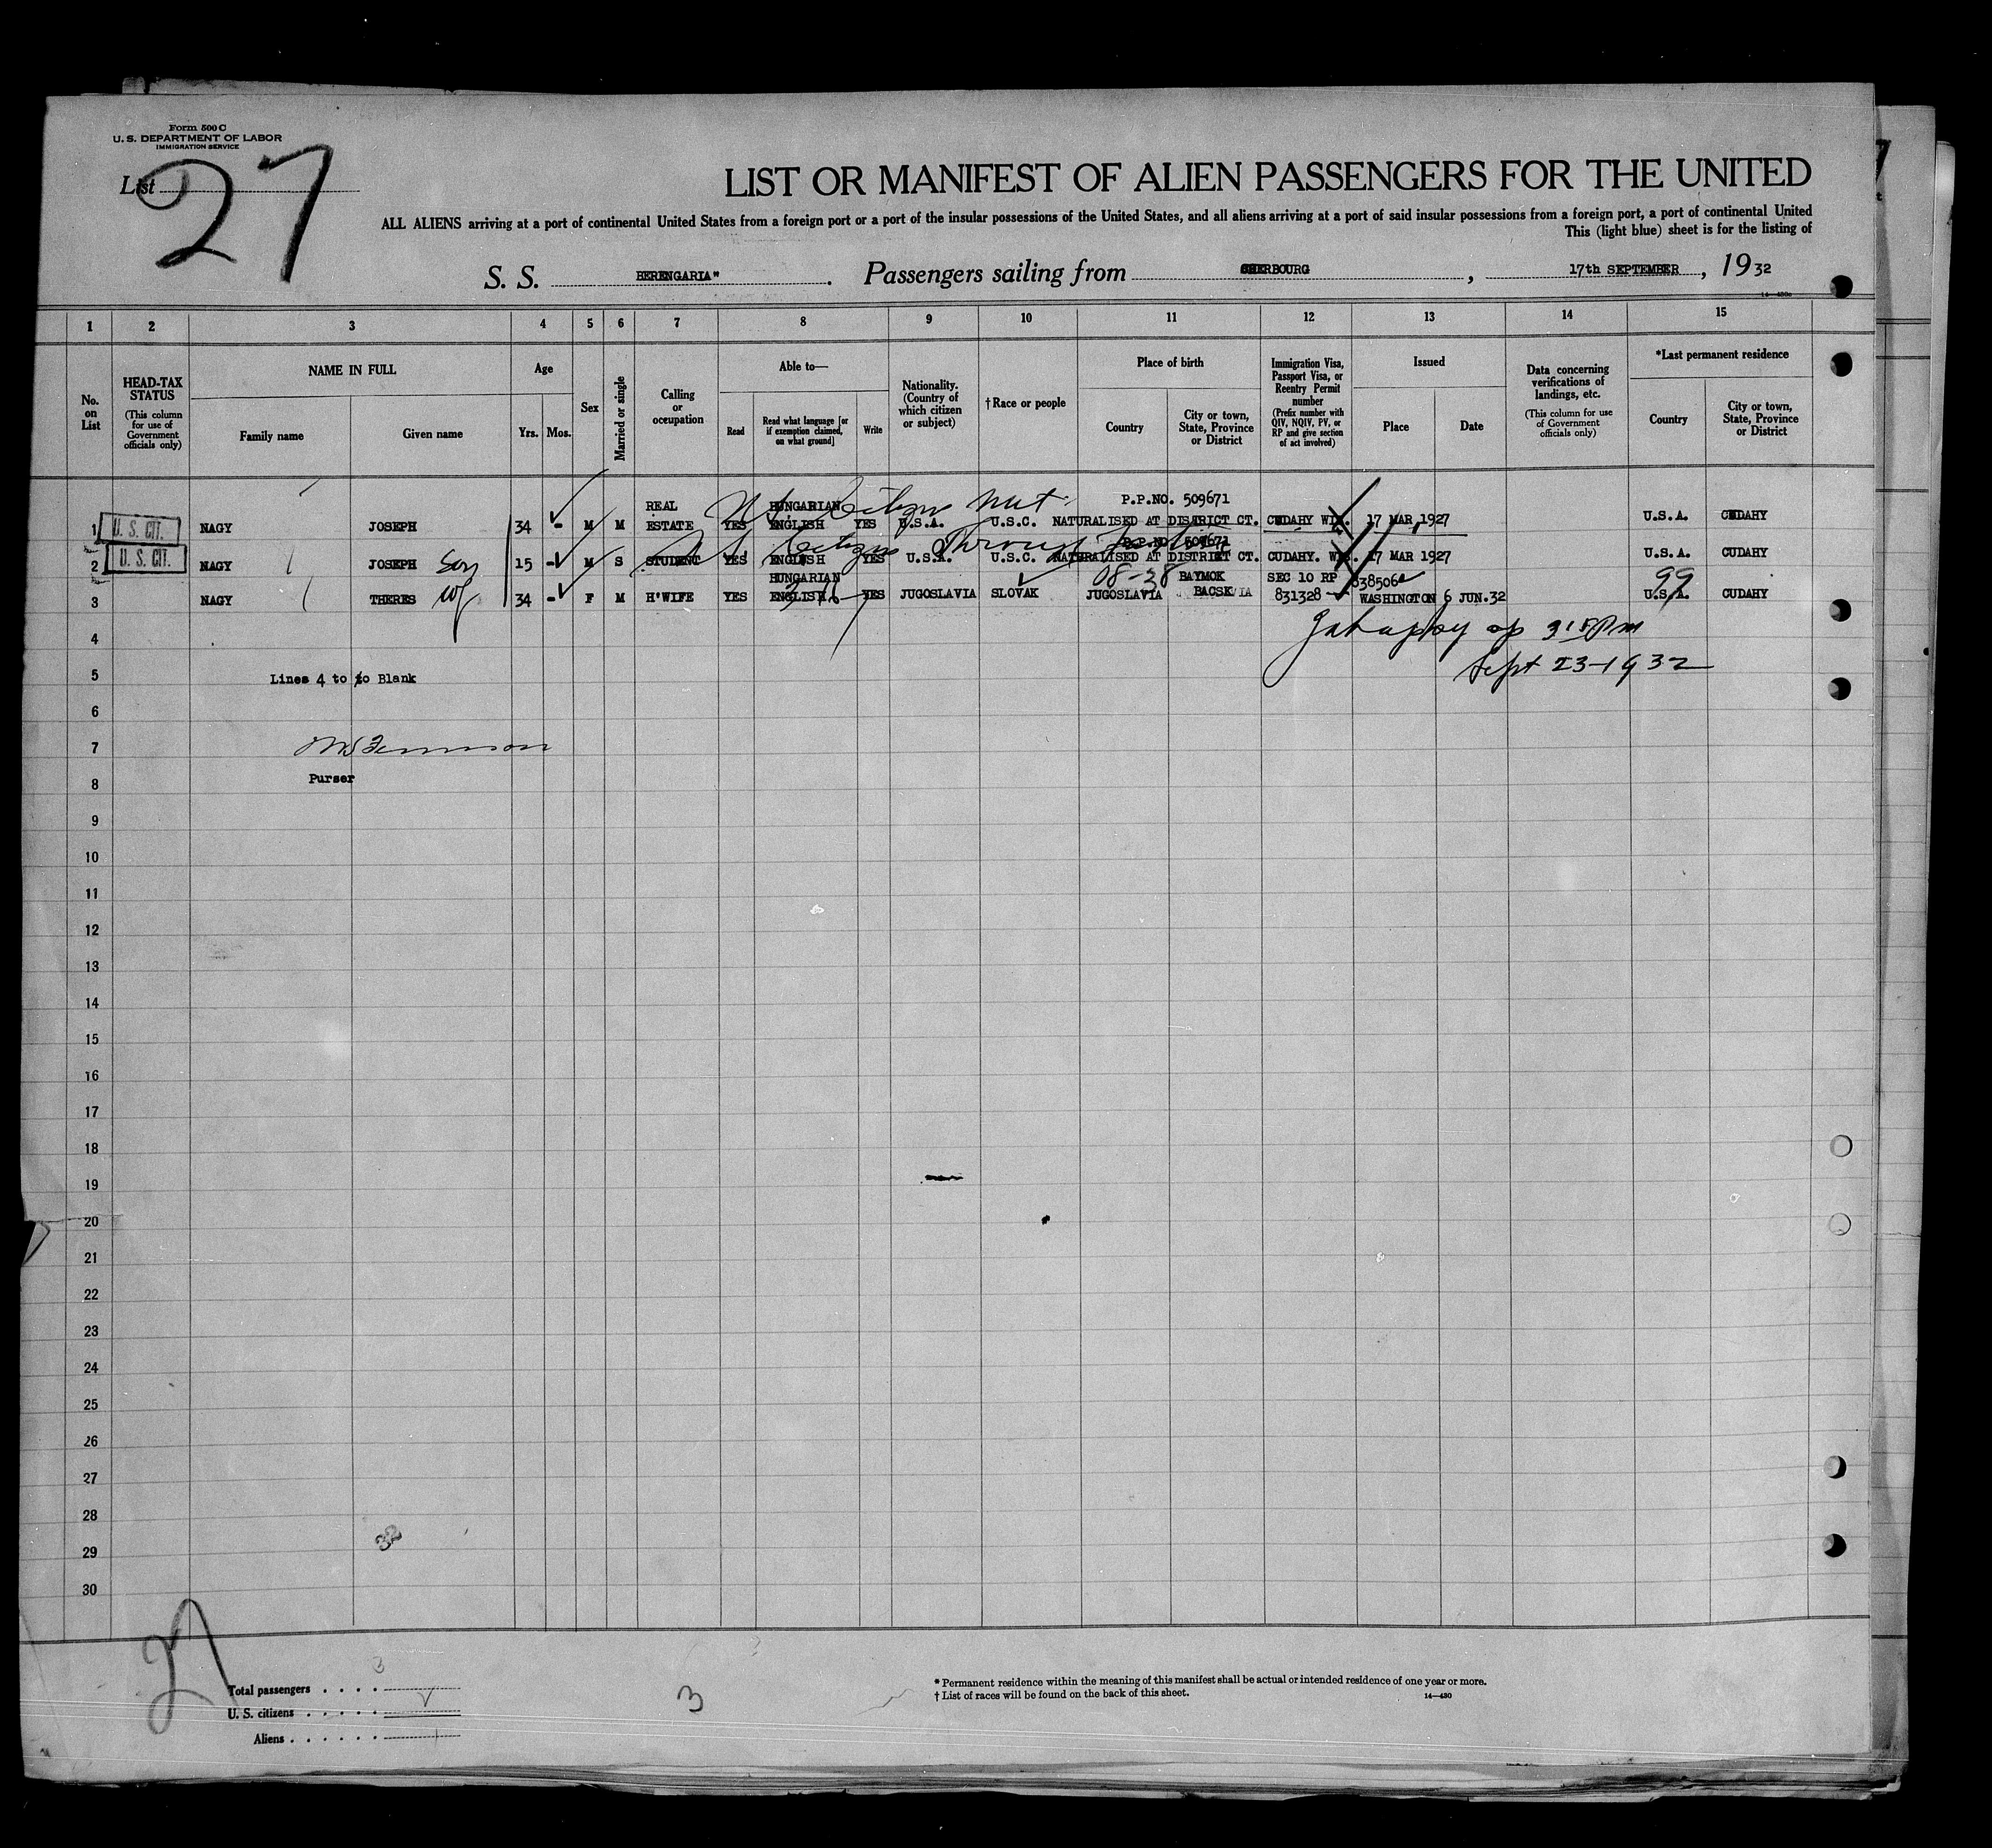 Form 500 C
U. S. DEPARTMENT OF LABOR
IMMIGRATION SERVICE
List 27
LIST OR MANIFEST OF ALIEN PASSENGERS FOR THE UNITED
ALL ALIENS arriving at a port of continental United States from a foreign port or a port of the insular possessions of the United States, and all aliens arriving at a port of said insular possessions from a foreign port, a port of continental United
This (light blue) sheet is for the listing of
S. S. BERENGARIA" . Passengers sailing from CHERBOURG , 17th SEPTEMBER , 1932
1 2 3 4 5 6 7 8 9 10 11 12 13 14 15
No. on List
HEAD-TAX STATUS
(This column for use of Government officials only)
NAME IN FULL
Family name
Given name
Age
Yrs.
Mos.
Sex
Married or single
Calling or occupation
Able to—
Read
Read what language [or if exemption claimed, on what ground]
Write
Nationality. (Country of which citizen or subject)
†Race or people
Place of birth
Country
City or town, State, Province or District
Immigration Visa, Passport Visa, or Reentry Permit number
(Prefix number with QIV, NQIV, PV, or RP and give section of act involved)
Issued
Place
Date
Data concerning verifications of landings, etc.
(This column for use of Government officials only)
*Last permanent residence
Country
City or town, State, Province or District
REAL HUNGARIAN U.S. Citizen Nat. P.P.NO. 509671
1 U. S. CIT. NAGY JOSEPH 34 - M M ESTATE YES ENGLISH YES U.S.A. U.S.C. NATURALISED AT DISTRICT CT. CUDAHY WIS. 17 MAR 1927 U.S.A. CUDAHY
U.S. Citizen Through father P.P.NO 509671
2 U. S. CIT. NAGY JOSEPH Son 15 - M S STUDENT YES ENGLISH YES U.S.A. U.S.C. NATURALISED AT DISTRICT CT. CUDAHY. WIS. 17 MAR 1927 U.S.A. CUDAHY
HUNGARIAN 08-38 BAYMOK SEC 10 RP 838506 99
3 NAGY THERES Wf 34 - F M H'WIFE YES ENGLISH YES JUGOSLAVIA SLOVAK JUGOSLAVIA BACSK 831328 WASHINGTON 6 JUN.32 U.S.A. CUDAHY
4
315 PM
5 Lines 4 to to Blank
Sept 23-1932
6
7
Purser
8
9
10
11
12
13
14
15
16
17
18
19
20
21
22
23
24
25
26
27
28
29
30
27
Total passengers . . . . 3
U. S. citizens . . . . .
Aliens . . . . . . 1
3
* Permanent residence within the meaning of this manifest shall be actual or intended residence of one year or more.
† List of races will be found on the back of this sheet.
14—430